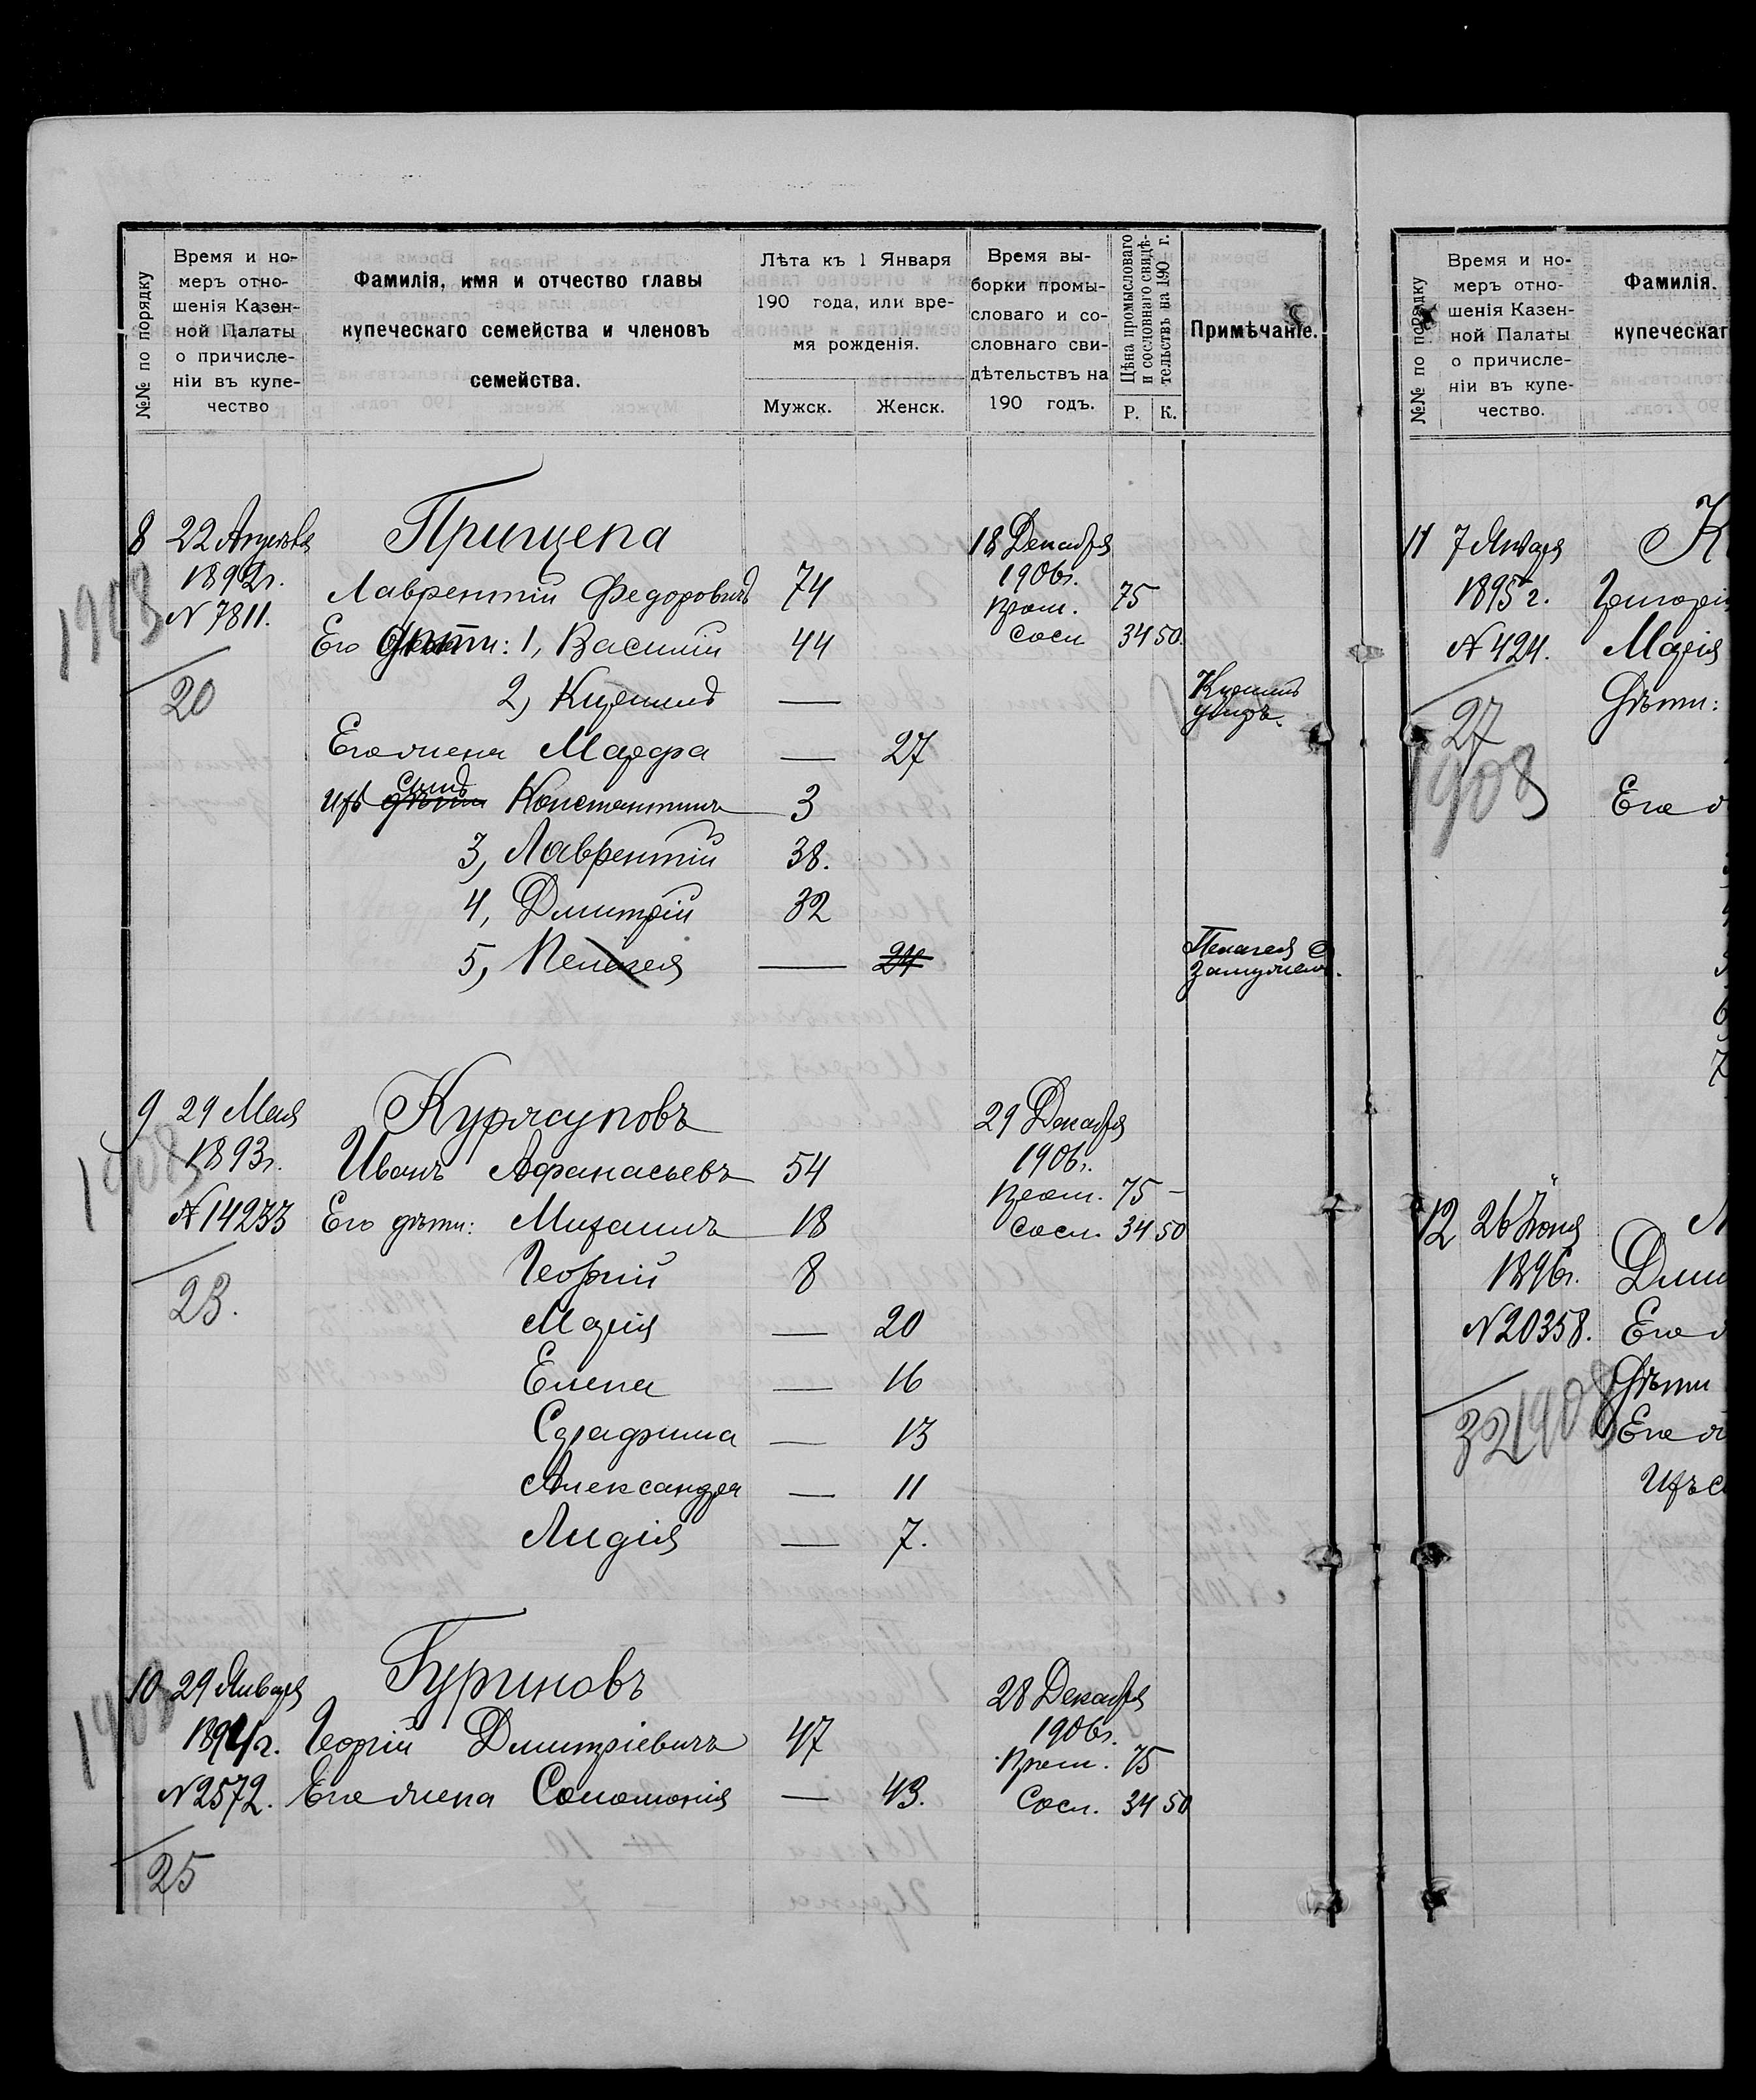 №№ по порядку
Время и но-
меръ отно-
шенія Казен-
ной Палаты
о причисле-
ніи въ купе-
чество
Фамилія, имя и отчество главы
купеческаго семейства и членовъ
семейства.
Лѣта къ 1 Января
190 года, или вре-
мя рожденія.
Мужск. Женск.
Время вы-
борки промы-
словаго и со-
словнаго сви-
дѣтельствъ на
190 годъ.
Цѣна промысловаго
и сословнаго свидѣ-
тельствъ на 190 г.
Р. К.
Примѣчаніе.
8 22 Апрѣля Прищепа 18 Декабря
1892г. Лаврентій Федоровичъ 74 1906г.
N 7811. пром. 75
1908
Его дѣти: 1, Василій 44 сосл 34 50.
20 2, Кирилъ — Кирилъ
умеръ.
Его жена Марфа — 27
сынъ
ихъ дѣти Константинъ 3
3, Лаврентій 38.
4, Дмитрій 32
5, Пелагея — 24 Пелагея
замужем.
9 29 Мая Курясуповъ 29 Декабря
1908
1893г. Иванъ Афанасьевъ 54 1906г.
пром. 75 -
№ 14233 Его дѣти: Михаилъ 18 сосл. 34 50
23. Георгій 8
Марія — 20
Елена — 16
Серафима — 13
Александра — 11
Лидія — 7.
10 29 Января Буриновъ 28 Декабря
1908
1894г. Георгій Дмитріевичъ 47 1906г.
пром. 75
N 2572. Его жена Соломонія — 43. Сосл. 34 50
25
№№ по порядку
Время и но-
меръ отно-
шенія Казен-
ной Палаты
о причисле-
ніи въ купе-
чество.
Фамилія.
купеческаг
11 7 Января К
1895г. Григорій
№ 424. Марія
27 Дѣти:
1908
Его
6
7
12 26 Іюня
1896г. Дми
N 20358. Его
Дѣти
32 1908 Его
Ихъ с